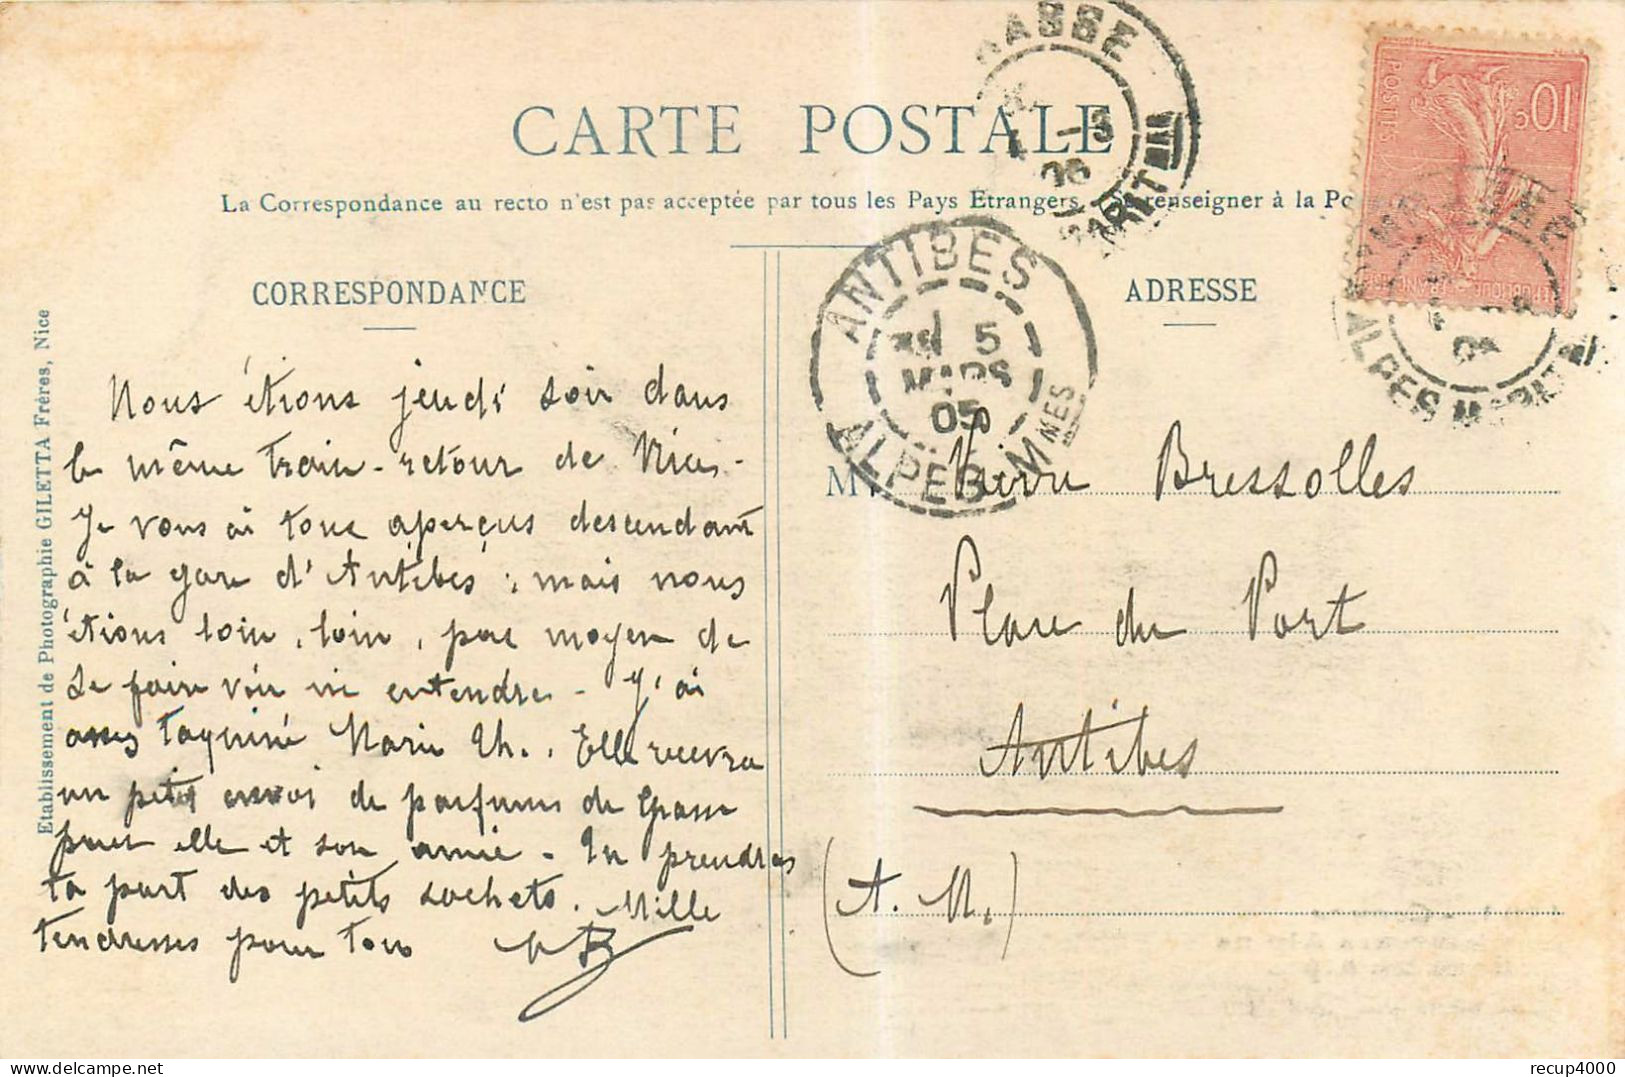 CARTE POSTALE
La Correspondance au recto n'est pas acceptée par tous les Pays Etrangers. Se renseigner à la Po
CORRESPONDANCE
ADRESSE
Etablissement de Photographie GILETTA Frères, Nice
Nous étions jeudi soir dans
le même train-retour de Nice-
Je vous ai tous aperçus descendant
à la gare d'Antibes ; mais nous
étions loin, loin, pas moyen de
se faire voir ni entendre - J'ai
assez taquiné Marie Th.. Elle recevra
un petit envoi de parfums de Grasse
pour elle et son amie - Tu prendras
ta part des petits sachets. Mille
tendresses pour tous
M Veuve Bressolles
Place du Port
Antibes
(A. M.)
ANTIBES
5
MARS
05
ALPES-MNES
GRASSE
-3
MARIT
10c
POSTES
REPUBLIQUE FRANÇAISE
ALPES MARIT
recup4000